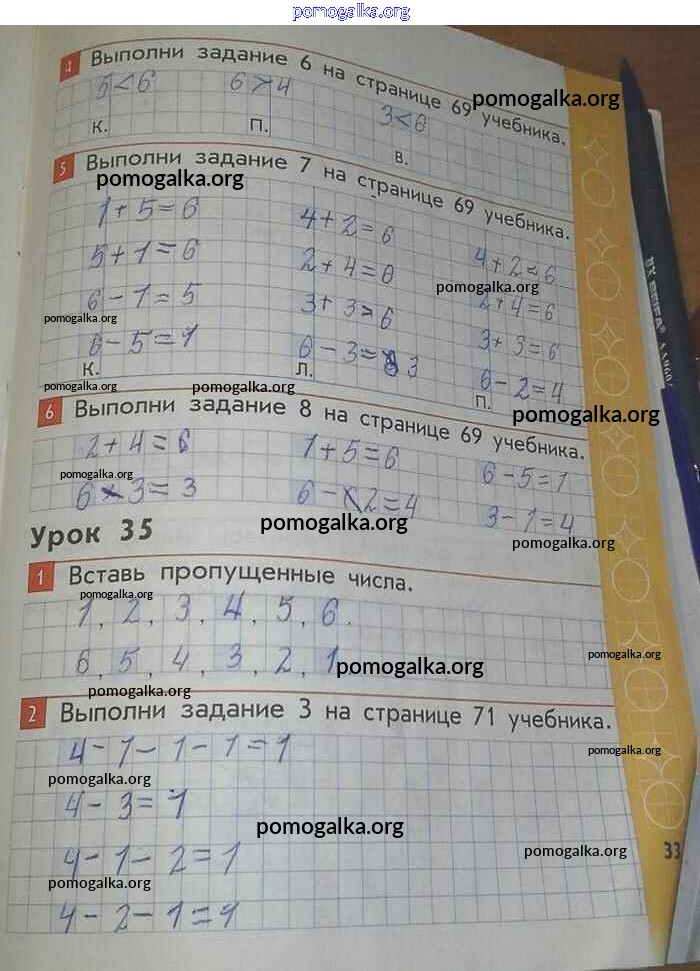 pomogalka.org
4 Выполни задание 6 на странице 69 учебника.
5<6 6>4 3<6
pomogalka.org
К. П. В.
5 Выполни задание 7 на странице 69 учебника.
pomogalka.org
1+5=6 4+2=6 4+2=6
5+1=6 2+4=6 2+4=6
pomogalka.org
6-1=5 3+3=6 3+3=6
pomogalka.org
6-5=1 6-3=3 6-2=4
К. Л. П.
pomogalka.org pomogalka.org pomogalka.org
6 Выполни задание 8 на странице 69 учебника.
2+4=6 1+5=6 6-5=1
pomogalka.org
6-3=3 6-2=4 3-1=4
Урок 35 pomogalka.org pomogalka.org
1 Вставь пропущенные числа.
pomogalka.org
1, 2, 3, 4, 5, 6.
6, 5, 4, 3, 2, 1 pomogalka.org pomogalka.org
pomogalka.org
2 Выполни задание 3 на странице 71 учебника.
4-1-1-1=1
pomogalka.org pomogalka.org
4-3=1
pomogalka.org
4-1-2=1 pomogalka.org 33
pomogalka.org
4-2-1=1